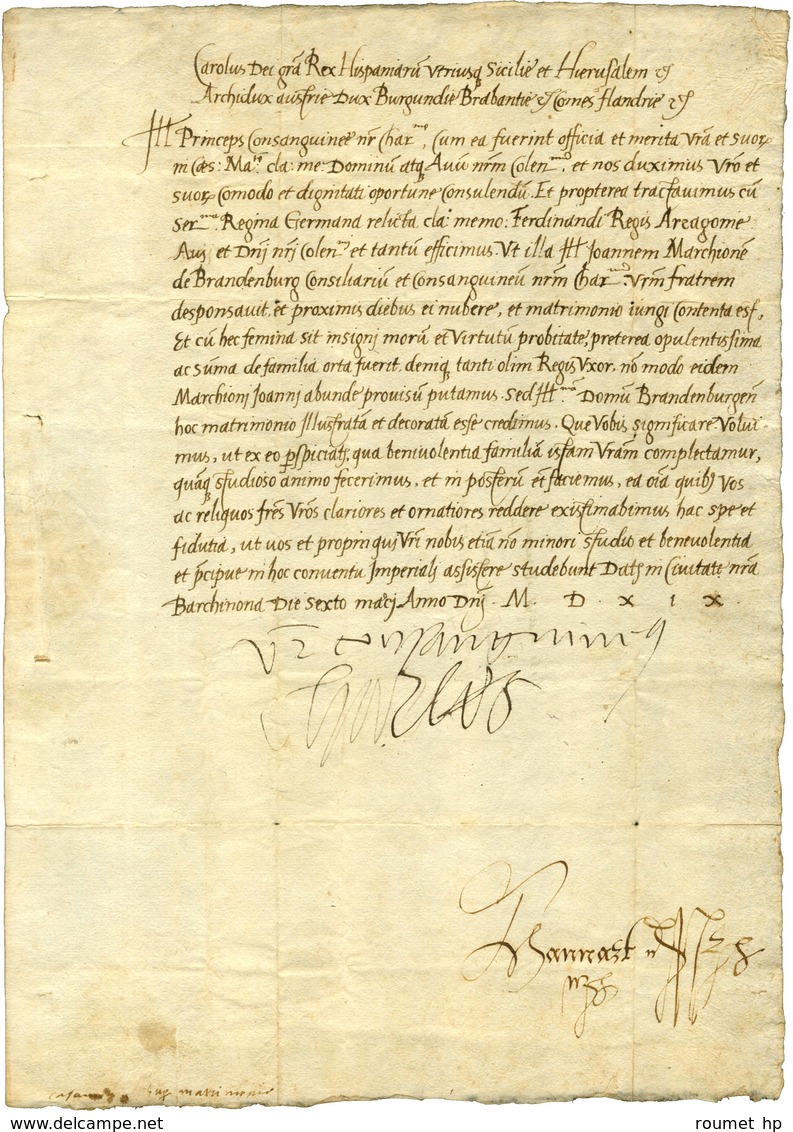 Carolus Dei grã Rex Hispaniarũ utriusq Sicilie et Hierusalem &c
Archidux austrie Dux Burgundie Brabantie &c Comes Flandrie &c
Ill Princeps Consanguinee nr̃ Charme, Cum ea fuerint officia et merita vrã et suorꝝ
in Cæs: Matem cla: me: Dominũ atq Avũ nrm̃ Colenmũ, et nos duximus vrõ et
suorꝝ Comodo et dignitati oportune Consulendũ. Et propterea tractavimus cũ
Serma Regina Germana relicta cla: memo: Ferdinandi Regis Aragonie
Avi et Dnj nrj Colenmi et tantũ efficimus. Ut illa Ill Joannem Marchionẽ
de Brandenburg Consiliariũ et Consanguineũ nrm̃ Charmũ. Vrm̃ fratrem
desponsavit, et proximis diebus ei nubere, et matrimonio iungi Contenta est,
Et cũ hec femina sit insignj morũ et Virtutũ probitate, preterea opulentissima
ac sũma de familia orta fuerit, deniq, tanti olim Regis Uxor, nõ modo eidem
Marchioni Joannj abunde provisũ putamus. Sed Illmã Domũ Brandenburgeñ
hoc matrimonio Illustratã et decoratã esse credimus. Que Vobis significare Volui-
mus, ut ex eo pspiciatis, qua benivolentia familiã istam Vram̃ complectamur,
quãq studioso animo fecerimus, et in posterũ et faciemus, ea oĩa quibꝫ vos
ac reliquos frẽs Vrõs clariores et ornatiores reddere existimabimus hac spe et
fidutia, ut vos et propinqui Vrĩ nobis etiã nõ minori studio et benevolentia
et pr̃cipue in hoc conventu Imperialj assistere studebunt Datꝭ in Civitate nrã
Barchinona Die sexto marcj Anno Dnj. M. D X I X
Vr̃ consanguineus
Charles
Hannart